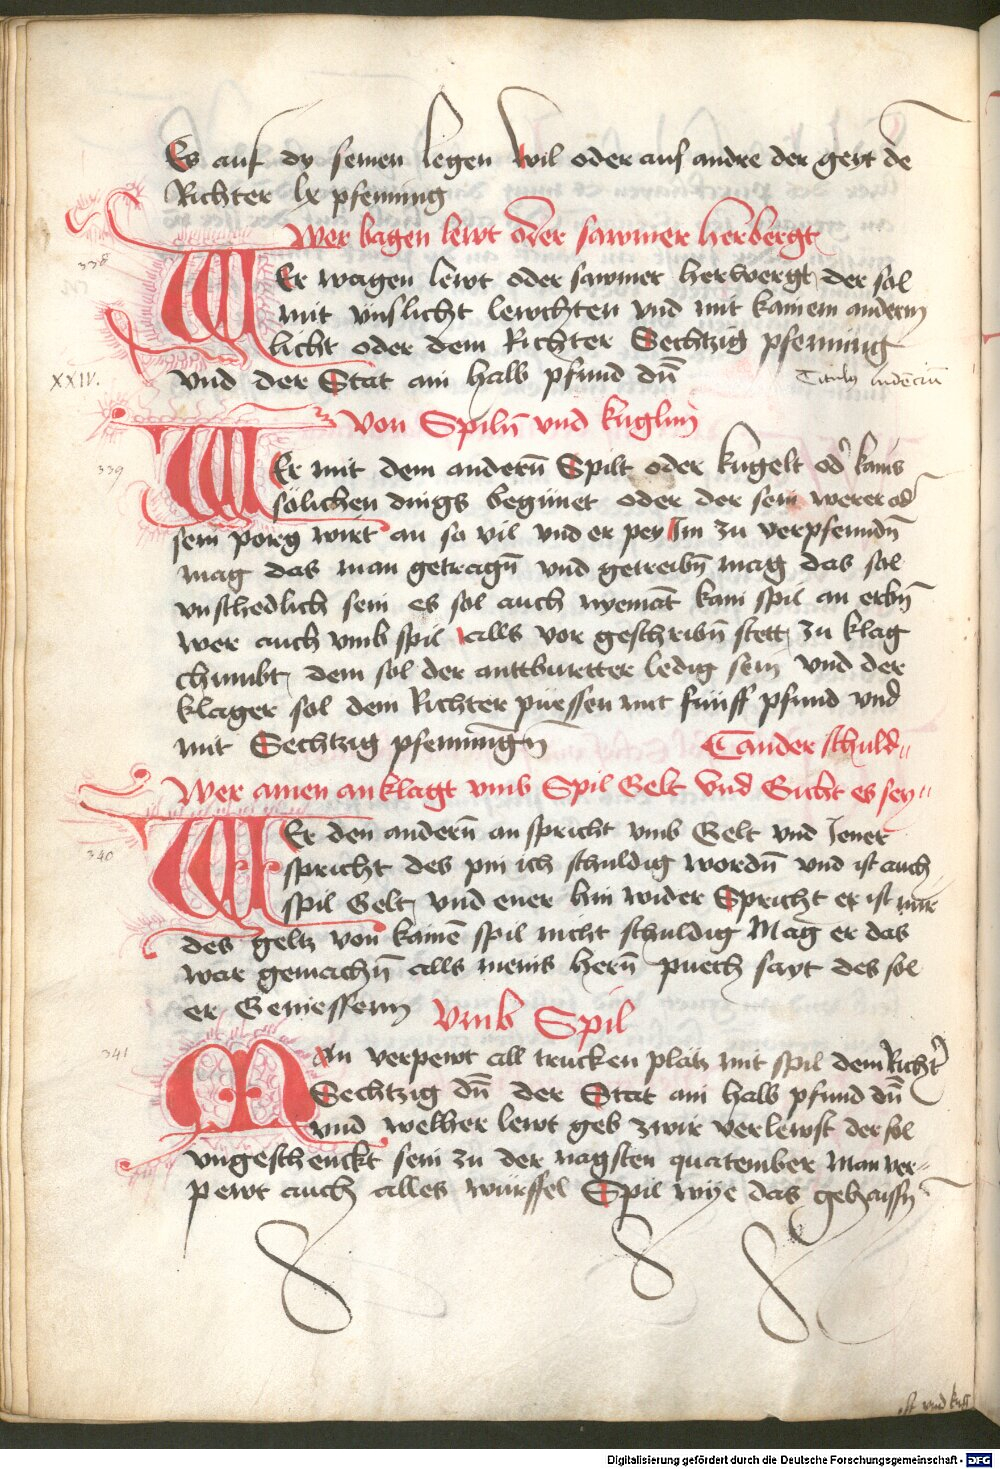 Es auf dy seinen legen wil oder auf andre der geyt de
Richter lx pfenning
Wer bagen lewt oder sawmer herbergt
338
Er wagen lewt oder sawmer herbergt der sol
mit unslicht lewchten und mit kainem andern
licht oder dem Richter Sechtzig pfenning
XXIV.
und der Stat ain halb pfund dn̄
Von Spiln̄ und kuglnn
339
WEr mit dem andern̄ Spilt oder kugelt od' kains
sölichen dings begünet oder der sein werer od'
sein porg wirt an so vil und er pey Im zu verpfenndn̄
mag das man getragn̄ und getreibn̄ mag das sol
unschedlich sein es sol auch nyemāt kain spil an erbn̄
wer auch umb spil alls vor geschribn̄ stett zu klag
chumbt dem sol der anttburtter ledig sein und der
klager sol dem Richter püessen mit fünff pfund und
mit Sechtzig pfenningn̄
ander schuld
Wer ainen anklagt umb Spil Gelt Und Gicht es sey
340
WEr den andern̄ an spricht umb Gelt und Jener
spricht des pin ich schuldig wordn̄ und ist auch
spil Gelt und ener hin wider Spricht er ist mir
des geltz von kainē spil nicht schuldig Mag er das
war gemachn̄ alls meins hern̄ puech sayt des sol
er Geniessenn
Umb Spil
341
MAn verpewt all trucken plätz mit spil dem Richt'
Sechtzig dn̄ der Stat ain halb pfund dn̄
und welher lewt geb zwir verlewst der sol
ungeschenckt sein zu der nagsten quatember Man ver-
pewt auch alles würffel Spil wye das gehaissn̄
ist und
Digitalisierung gefördert durch die Deutsche Forschungsgemeinschaft - DFG